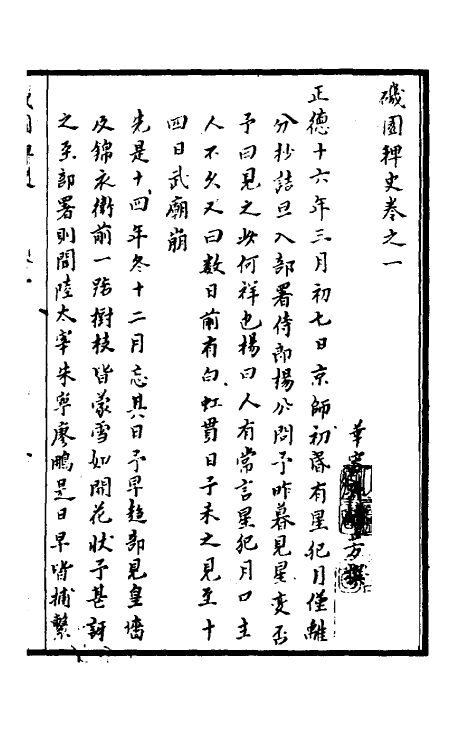 磯園稗史卷之一
華
方撰
正德十六年三月初七日京師初昏有星犯月僅離
分抄詰旦入部署侍郎楊公問予昨暮見星变否
予曰見之此何祥也楊曰人有常言星犯月口主
人不久又曰数日前有白虹貫日予未之見至十
四日武廟崩
先是十四年冬十二月忘其日予早趍部見皇墻
及錦衣衛前一路樹枝皆蒙雪如開花狀予甚訝
之至部署則聞陸太宰朱寧廖鵬是日早皆捕繫